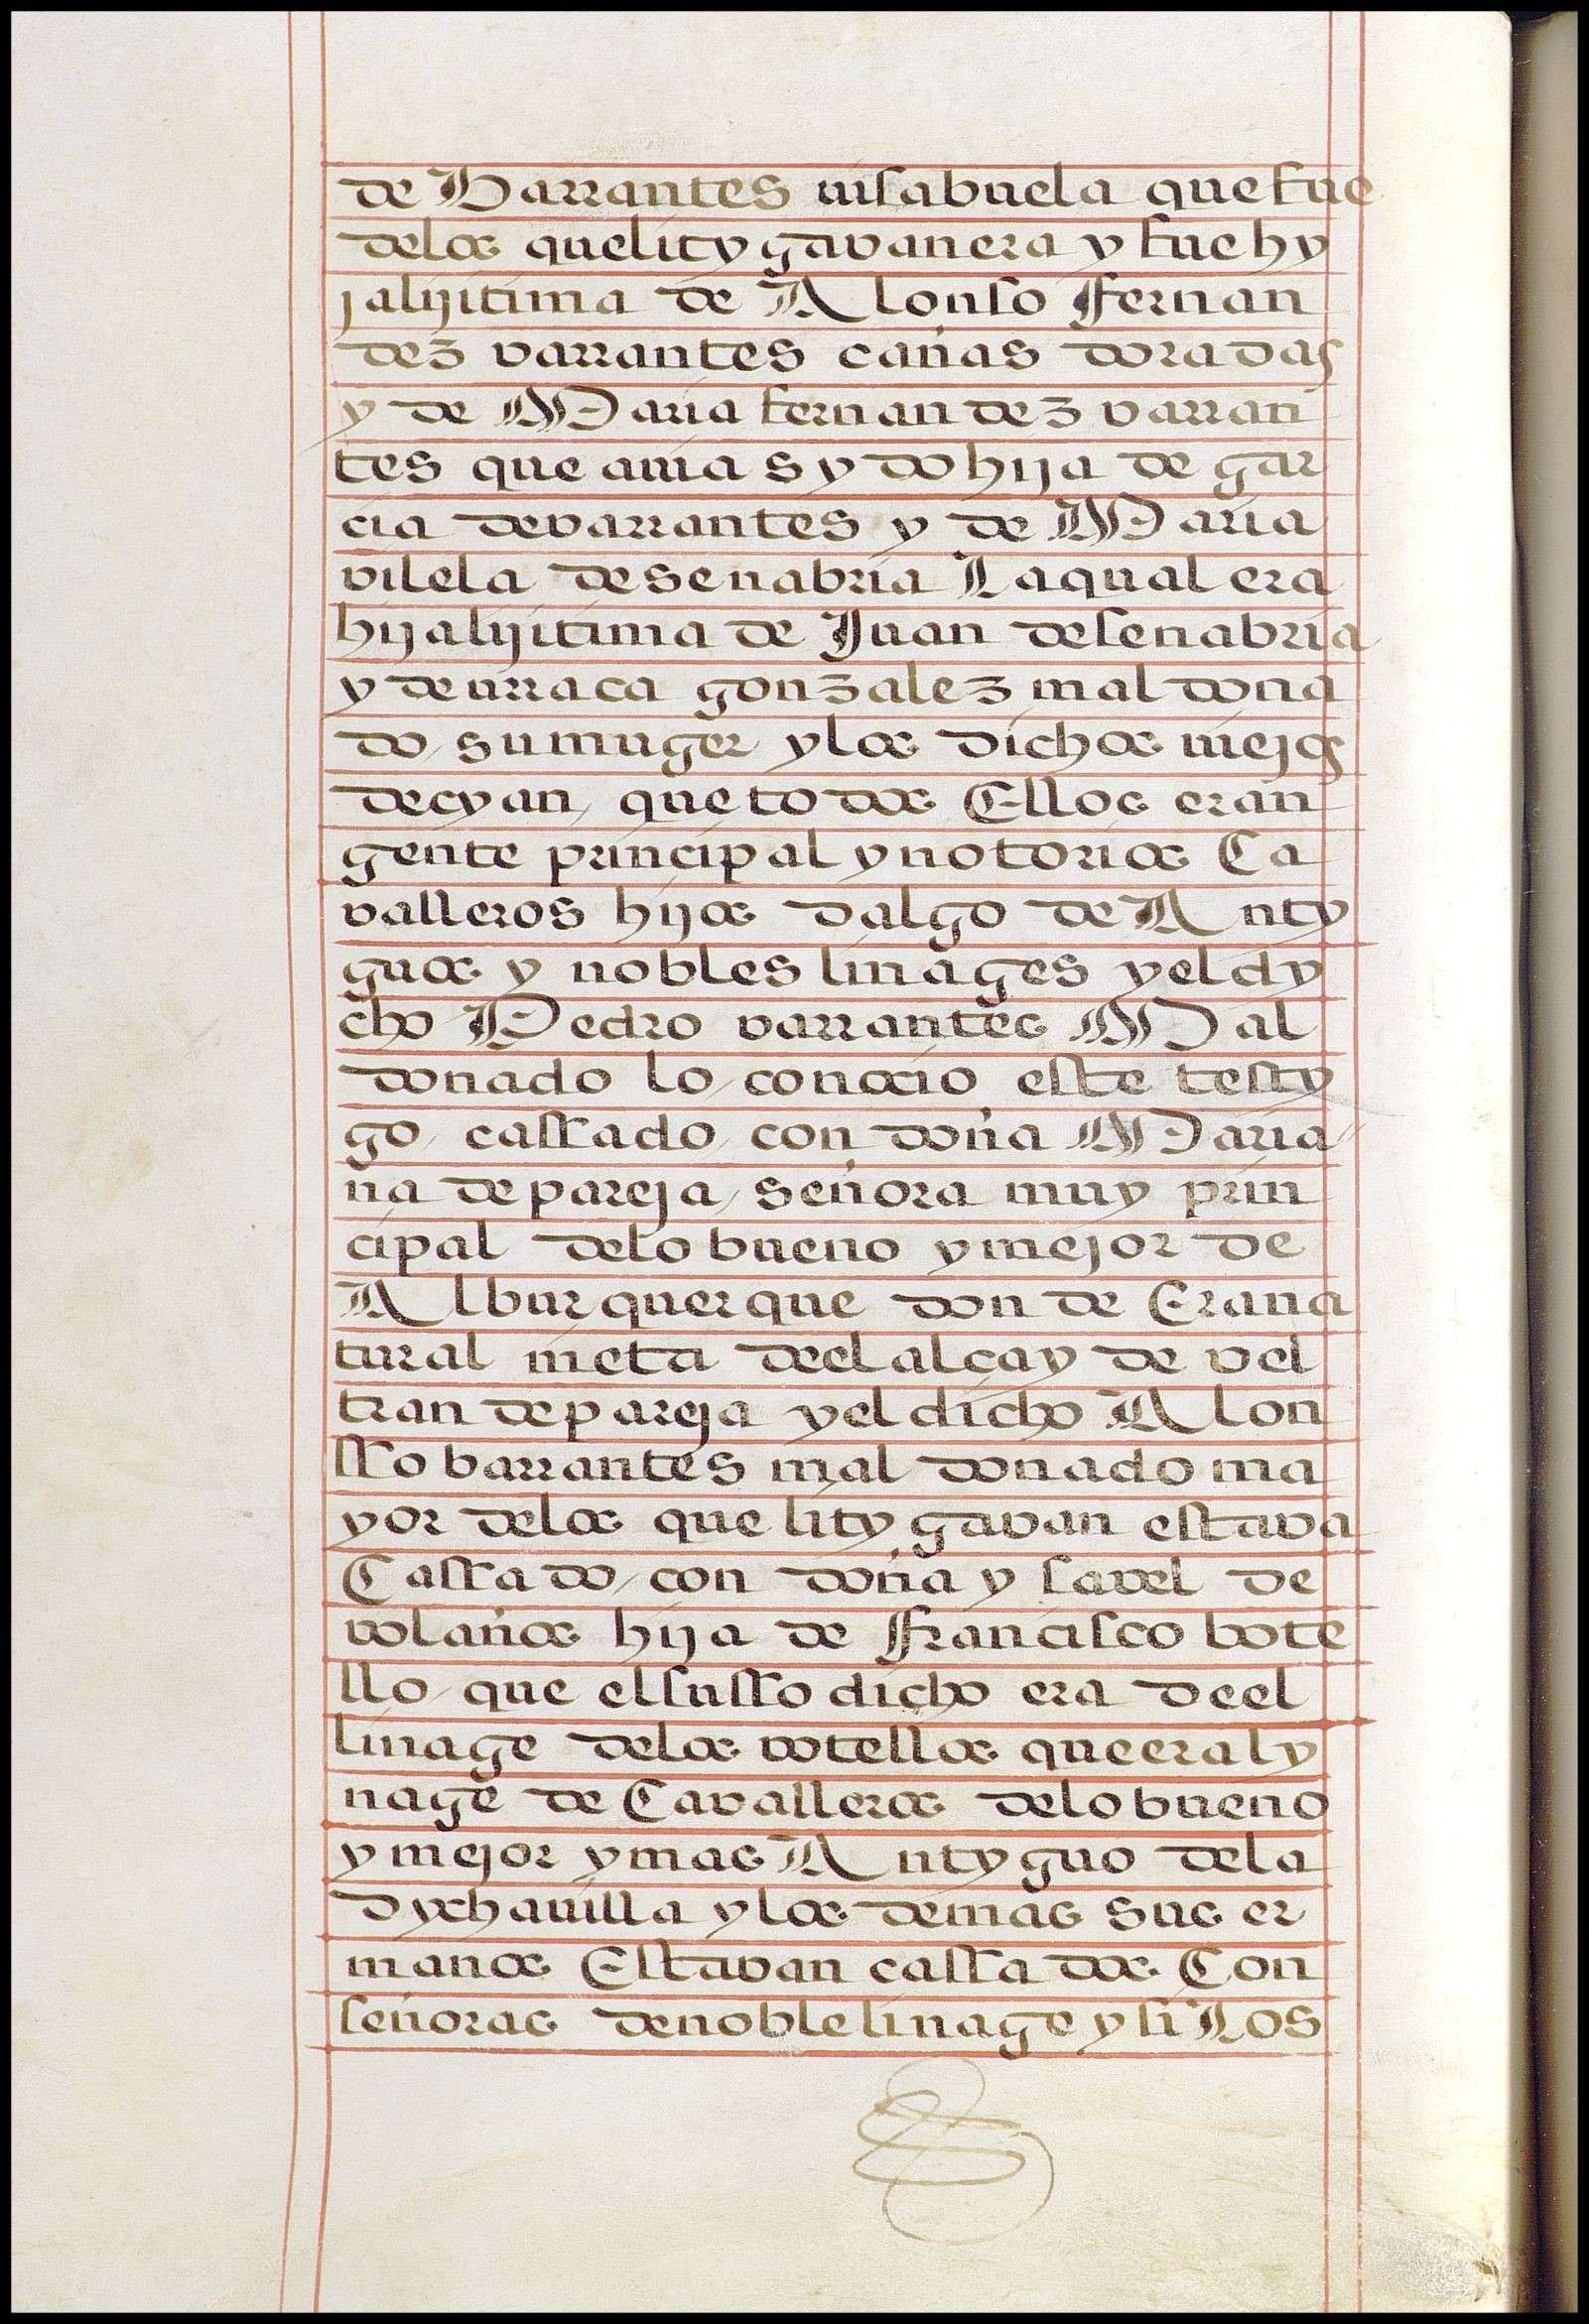 de Barrantes uisabuela que fue
delos quelitygavanera y fue hy
jalijitima de Alonso Fernan
dez varrantes cañas doradas
y de Maria fernandez varran
tes que auia sydo hija de gar
cia devarrantes y de Maria
vilela desenabria Laqual era
hijalijitima de Juan desenabria
y deurraca gonzalez maldona
do, sumuger, ylos dichos uiejos
decyan, quetodos Ellos eran
gente principal ynotorios Ca
valleros hijos dalgo de Anty
guos y nobles linages yeldy
cho Pedro varrantes Mal
donado lo conocio este testy
go, cassado, con doña Maria
na depareja, señora muy prin
cipal delo bueno ymejor de
Alburquerque donde Erana
tural nieta deel alcayde vel
tran depareja yel dicho Alon
sso barrantes maldonado ma
yor delos que litygavan estava
Cassado, con doña ysavel de
volaños hija de Francisco bote
llo, que elsusso dicho era deel
linage delos votellos queeraly
nage de Cavalleros delobueno
ymejor ymas Antyguo dela
dychauilla ylos demas sus er
manos Estavan cassados Con
señoras denoblelinage ysi Los